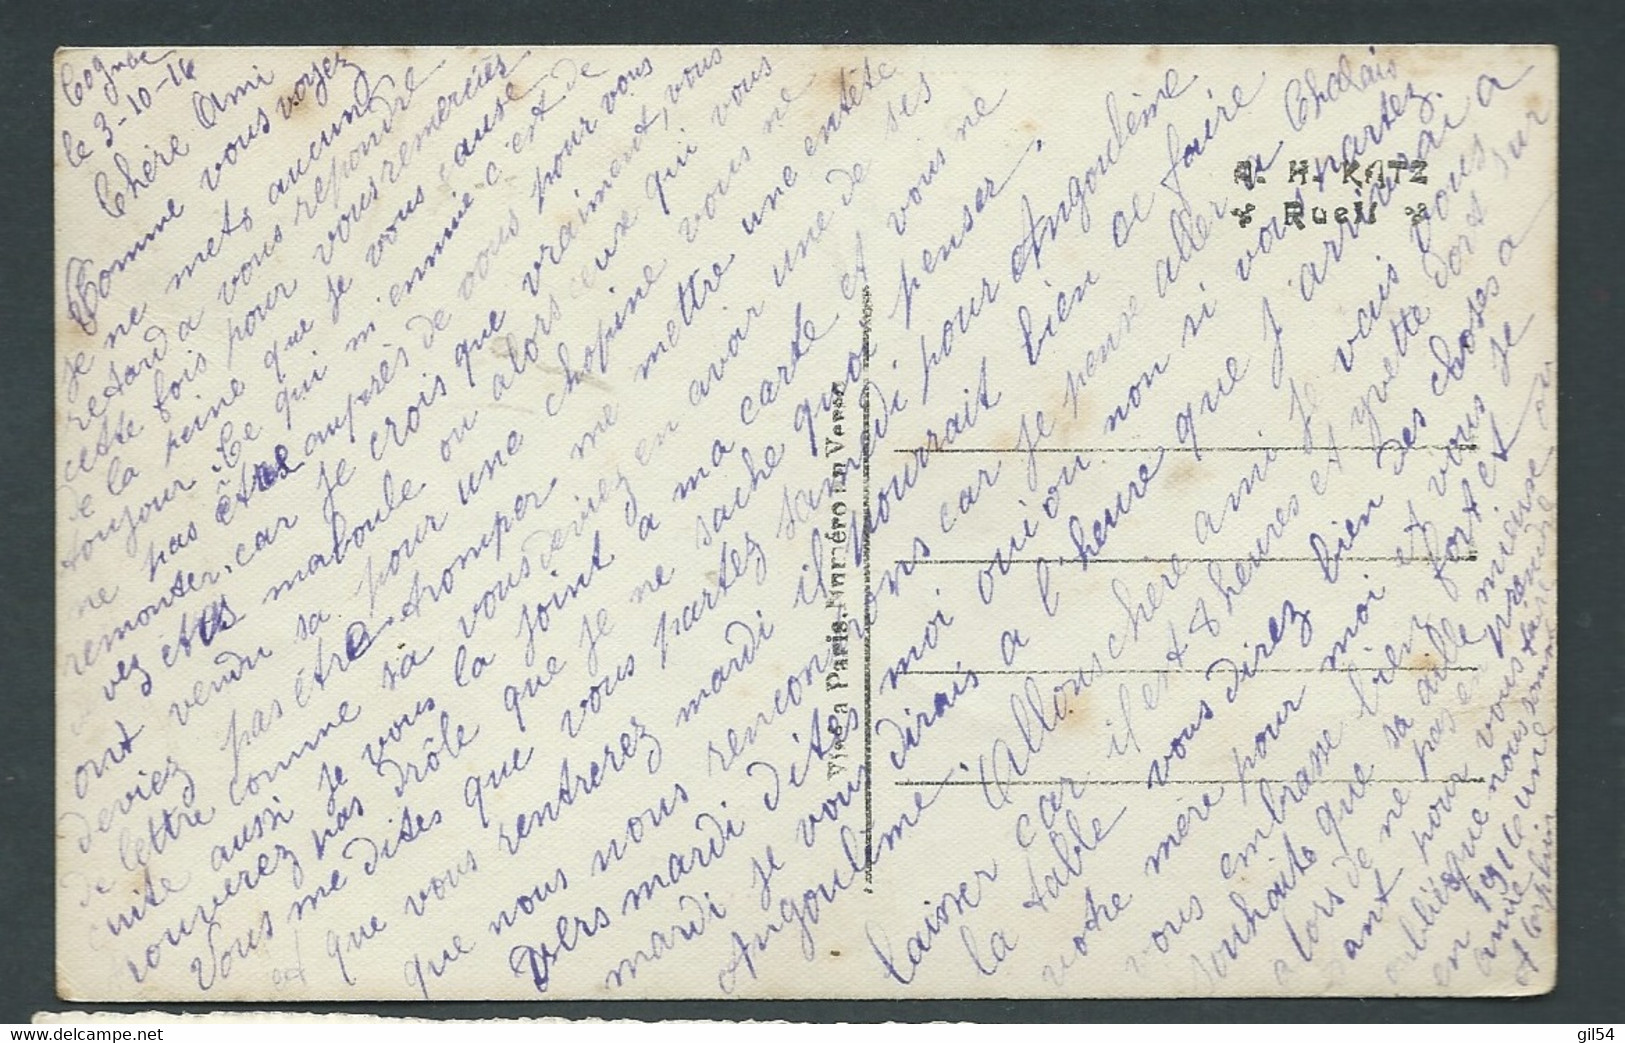 Cognac
le 3-10-16
Chère Ami
Comme vous voyez
je ne mets aucun
retard a vous repondre
cette fois pour vous remerciés
de la peine que je vous cause
toujour Ce qui m'ennuie c'est de
ne pas être auprès de vous pour vous
remonter, car je crois que vraiment, vous
vez etes maboule ou alors ceux qui vous
ont vendu sa pour une chopine vous ne
deviez pas être tromper me mettre une entête
de lettre comme sa vous deviez en avoir une de ses
cuite aussi je vous la joint a ma carte et vous ne
trouverez pas drôle que je ne sache quoi penser.
Vous me dites que vous partez samedi pour Angoulème
et que vous rentrerez mardi il pourrait bien ce faire
que nous nous rencontrerons car je pense aller a Chalais
vers mardi dites moi oui ou non si vous partez.
mardi je vous dirais a l'heure que j'arriverai a
Angoulème. Allons chère ami je vais vous
laisser car il est 8 heures et yvette dort sur
la table vous direz bien des choses a
votre mère pour moi et vous je
vous embrasse bien fort et
souhaite que sa aille mieux ou
alors de ne pas en prendre
tant pour vous taire
oubliés que nous sommes
en 1916 une
amie
et Orphin
A. H. KATZ
* Ruell *
Visé à Paris. Numéro au Verso
gil54